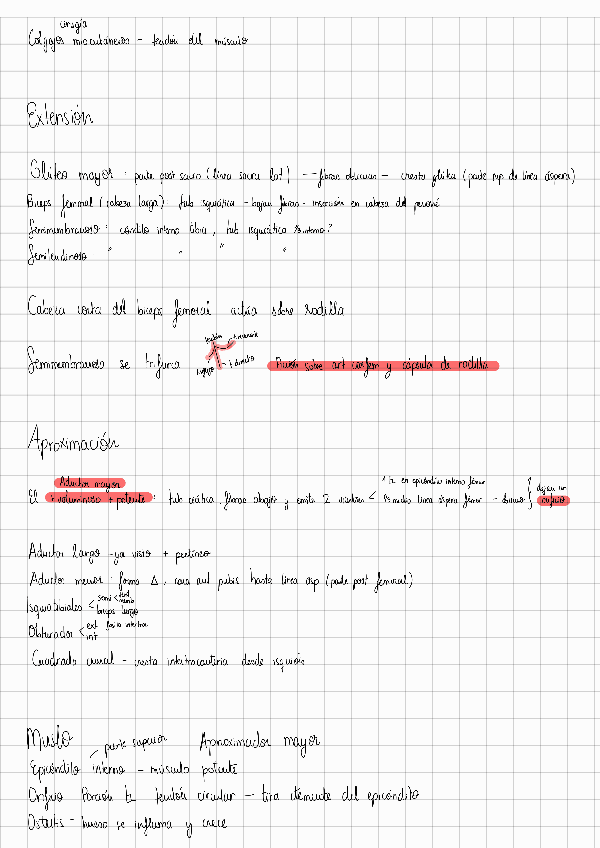 cirugía
Colgajos miocutáneos - tendón del músculo
Extensión
Glúteo mayor · parte post sacro (línea sacra lat) -- fibras oblicuas - cresta glútea (parte sup de línea áspera)
Biceps femoral (cabeza larga) tub isquiática - bajan fibras - inserción en cabeza del peroné
Semimembranoso : condilo interno tibia, tub isquiática
Semitendinoso " " " "
Cabeza corta del biceps femoral actúa sobre rodilla
Semimembranoso se trifurca
t directo
Acción sobre art coxfem y cápsula de rodilla
Aproximación
Aductor mayor
El + voluminoso + potente : tub ciática, fibras abajo y emite 2
tz en epicóndilo interno fémur
línea áspera fémur
dejan un orificio
Aductor largo - ya visto + pectíneo
Aductor menor : forma Δ, cara ant pubis hasta línea asp (parte post femoral)
Isquiotibiales < semi < tend memb
biceps largo
Obturador < ext int
Cuadrado crural - cresta intertrocantérea desde isquion
Muslo
parte superior Aproximador mayor
Epicóndilo interno - músculo potente
Orificio Porción tz tendón circular - tira del epicóndilo
Osteítis - hueso se inflama y crece